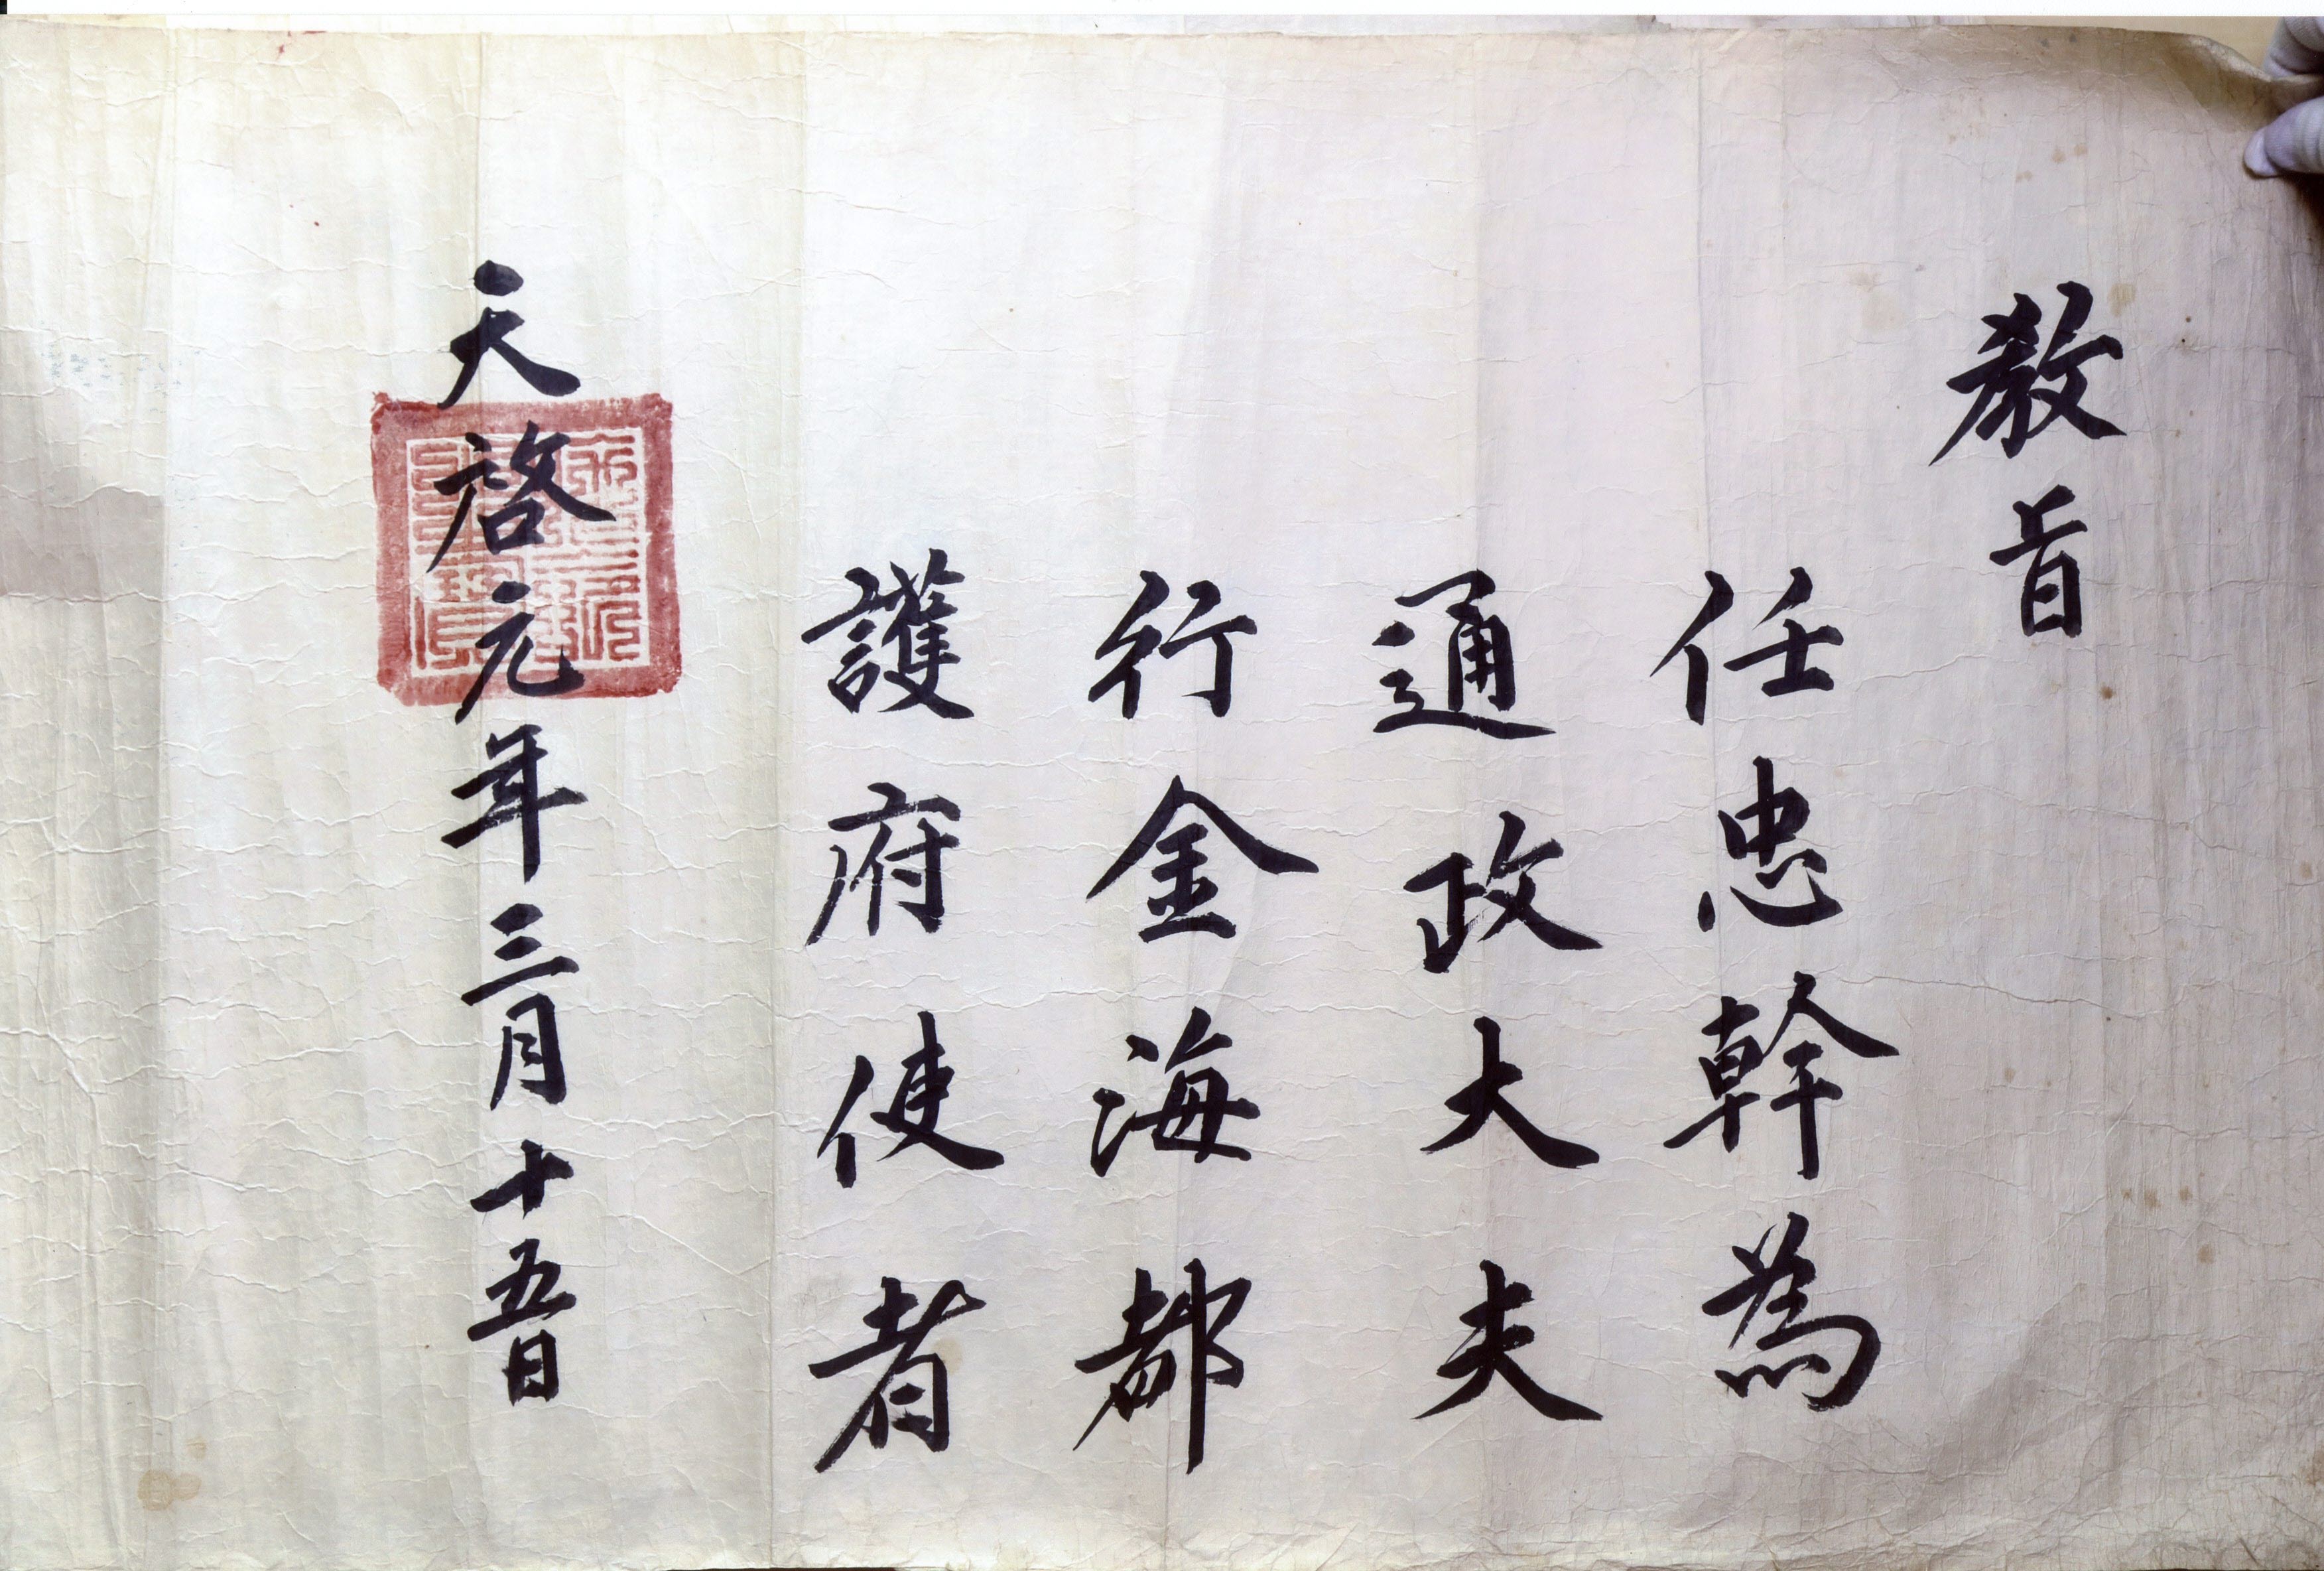 敎旨
任忠幹為
通政大夫
行金海都
護府使者
天啓元年三月十五日